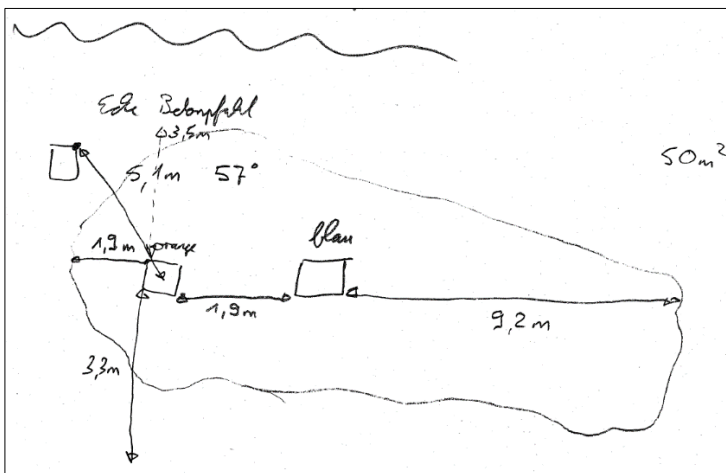 Ecke Betonpfahl
3,5m
5,1m 57°
50m²
1,9m
orange
blau
1,9m
9,2m
3,3m